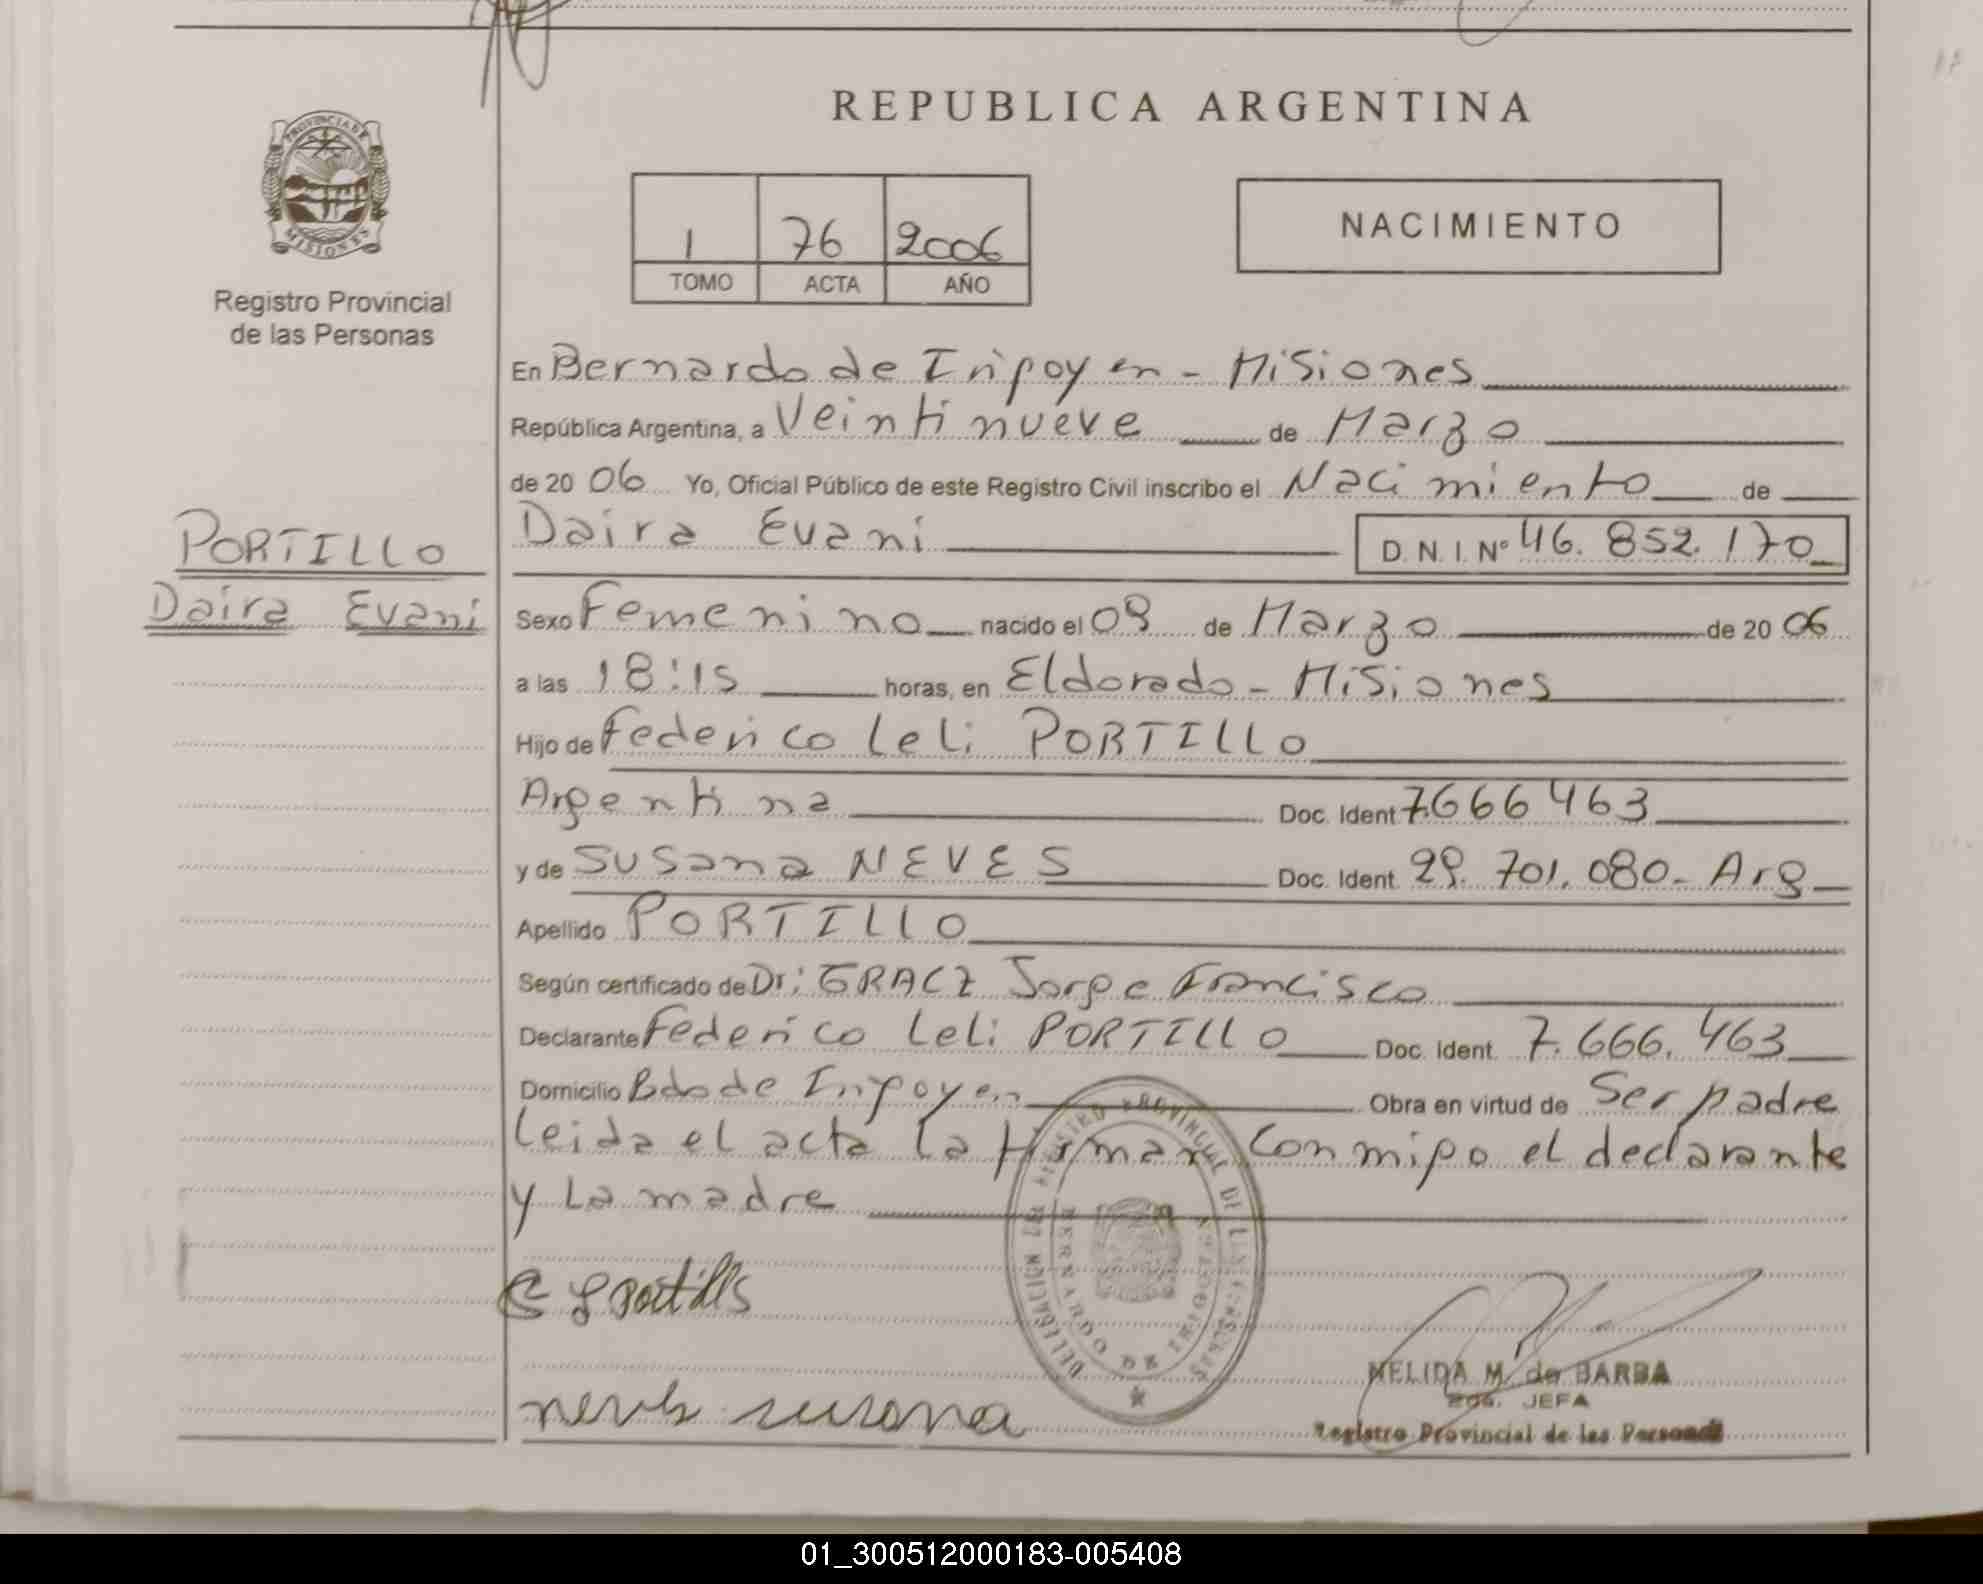 REPUBLICA ARGENTINA
PROVINCIA DE
MISIONES
Registro Provincial
de las Personas
1 76 2006
TOMO ACTA AÑO
NACIMIENTO
En Bernardo de Irigoyen - Misiones
República Argentina, a Veintinueve de Marzo
de 20 06 Yo, Oficial Público de este Registro Civil inscribo el Nacimiento de
PORTILLO
Daira Evani
Daira Evani D.N.I. Nº 46.852.170
Sexo Femenino nacido el 09 de Marzo de 20 06
a las 18:15 horas, en Eldorado - Misiones
Hijo de Federico Leli PORTILLO
Argentina Doc. Ident 7.666 463
y de Susana NEVES Doc. Ident. 29.701.080- Arg
Apellido PORTILLO
Según certificado de Dr: GRACZ Jorge Francisco
Declarante Federico Leli PORTILLO Doc. Ident. 7.666.463
Domicilio Bdo de Irigoyen Obra en virtud de Ser padre
Leida el acta la firman conmigo el declarante
y La madre
REGISTRO PROVINCIAL DE LAS PERSONAS
DELEGACION
BERNARDO DE IRIGOYEN
Portillo
neves susana
NELIDA M. de BARBA
JEFA
Registro Provincial de las Personas
01_300512000183-005408